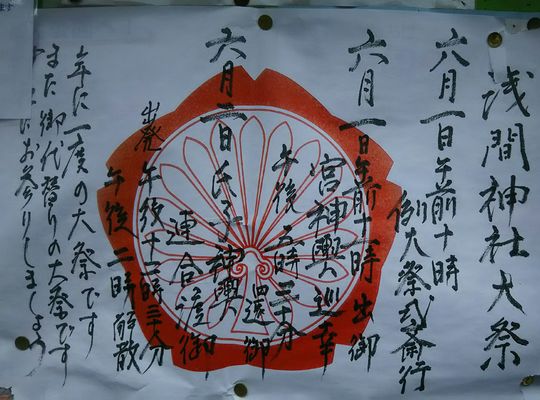 浅間神社大祭
六月一日午前十時
例大祭式斎行
六月一日午前十一時出御
宮神輿巡幸
午後五時三十分
還御
六月二日氏子神輿
連合渡御
出発午後十二時三十分
午後二時解散
年に一度の大祭です
また御代替りの大祭です
お参りしましょう